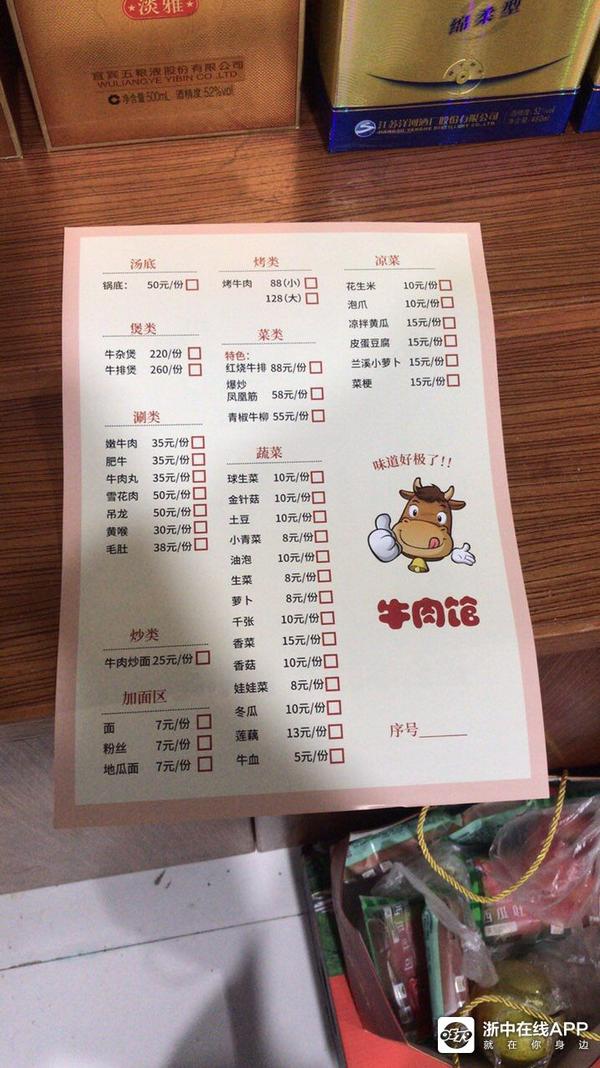 淡雅
宜宾五粮液股份有限公司
WULIANGYE YIBIN CO.,LTD
净含量500mL 酒精度:52%vol
绵柔型
江苏洋河酒厂股份有限公司
JIANGSU YANGHE DISTILLERY CO.,LTD
酒精度:52%vol
净含量:480ml
汤底
锅底: 50元/份
煲类
牛杂煲 220/份
牛排煲 260/份
涮类
嫩牛肉 35元/份
肥牛 35元/份
牛肉丸 35元/份
雪花肉 50元/份
吊龙 50元/份
黄喉 30元/份
毛肚 38元/份
炒类
牛肉炒面 25元/份
加面区
面 7元/份
粉丝 7元/份
地瓜面 7元/份
烤类
烤牛肉 88(小)
128(大)
菜类
特色:
红烧牛排 88元/份
爆炒
凤凰筋 58元/份
青椒牛柳 55元/份
蔬菜
球生菜 10元/份
金针菇 10元/份
土豆 10元/份
小青菜 8元/份
油泡 10元/份
生菜 8元/份
萝卜 8元/份
千张 10元/份
香菜 15元/份
香菇 10元/份
娃娃菜 8元/份
冬瓜 10元/份
莲藕 13元/份
牛血 5元/份
凉菜
花生米 10元/份
泡爪 10元/份
凉拌黄瓜 15元/份
皮蛋豆腐 15元/份
兰溪小萝卜 15元/份
菜梗 15元/份
味道好极了!!
牛肉馆
序号______
浙中在线APP
就在你身边